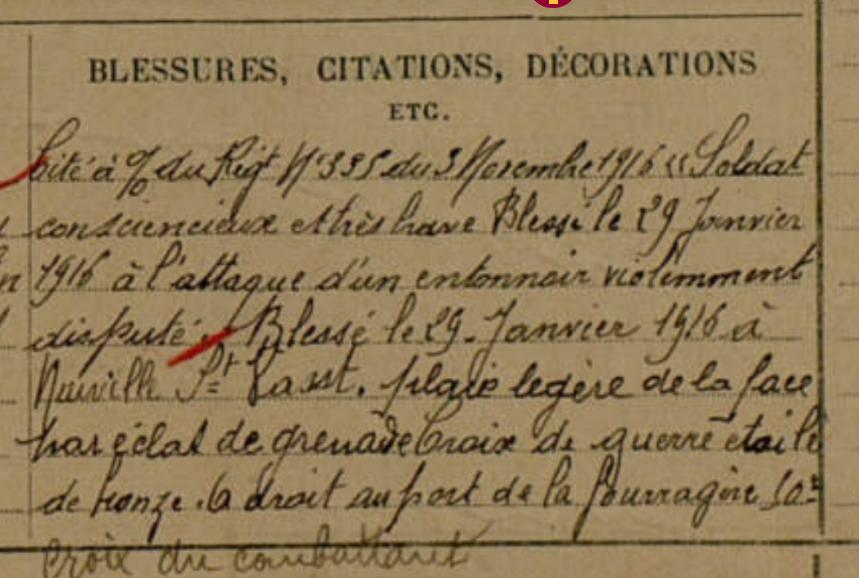 BLESSURES, CITATIONS, DÉCORATIONS
ETC.
Cité à % du Rigt N°335 du 3 Novembre 1916 « Soldat
consciencieux et très brave Blessé le 29 Janvier
1916 à l'attaque d'un entonnoir violemment
disputé. Blessé le 29. Janvier 1916 à
Neuville St Vasst. plaie legère de la face
par éclat de grenade Croix de guerre étoile
de bronze. A droit au port de la fourragère
Croix du combattant